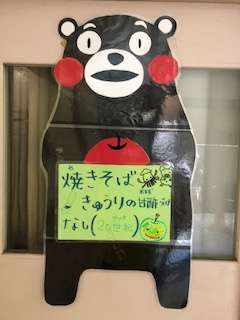 焼きそば
きゅうりの甘酢づけ
なし(20世紀)